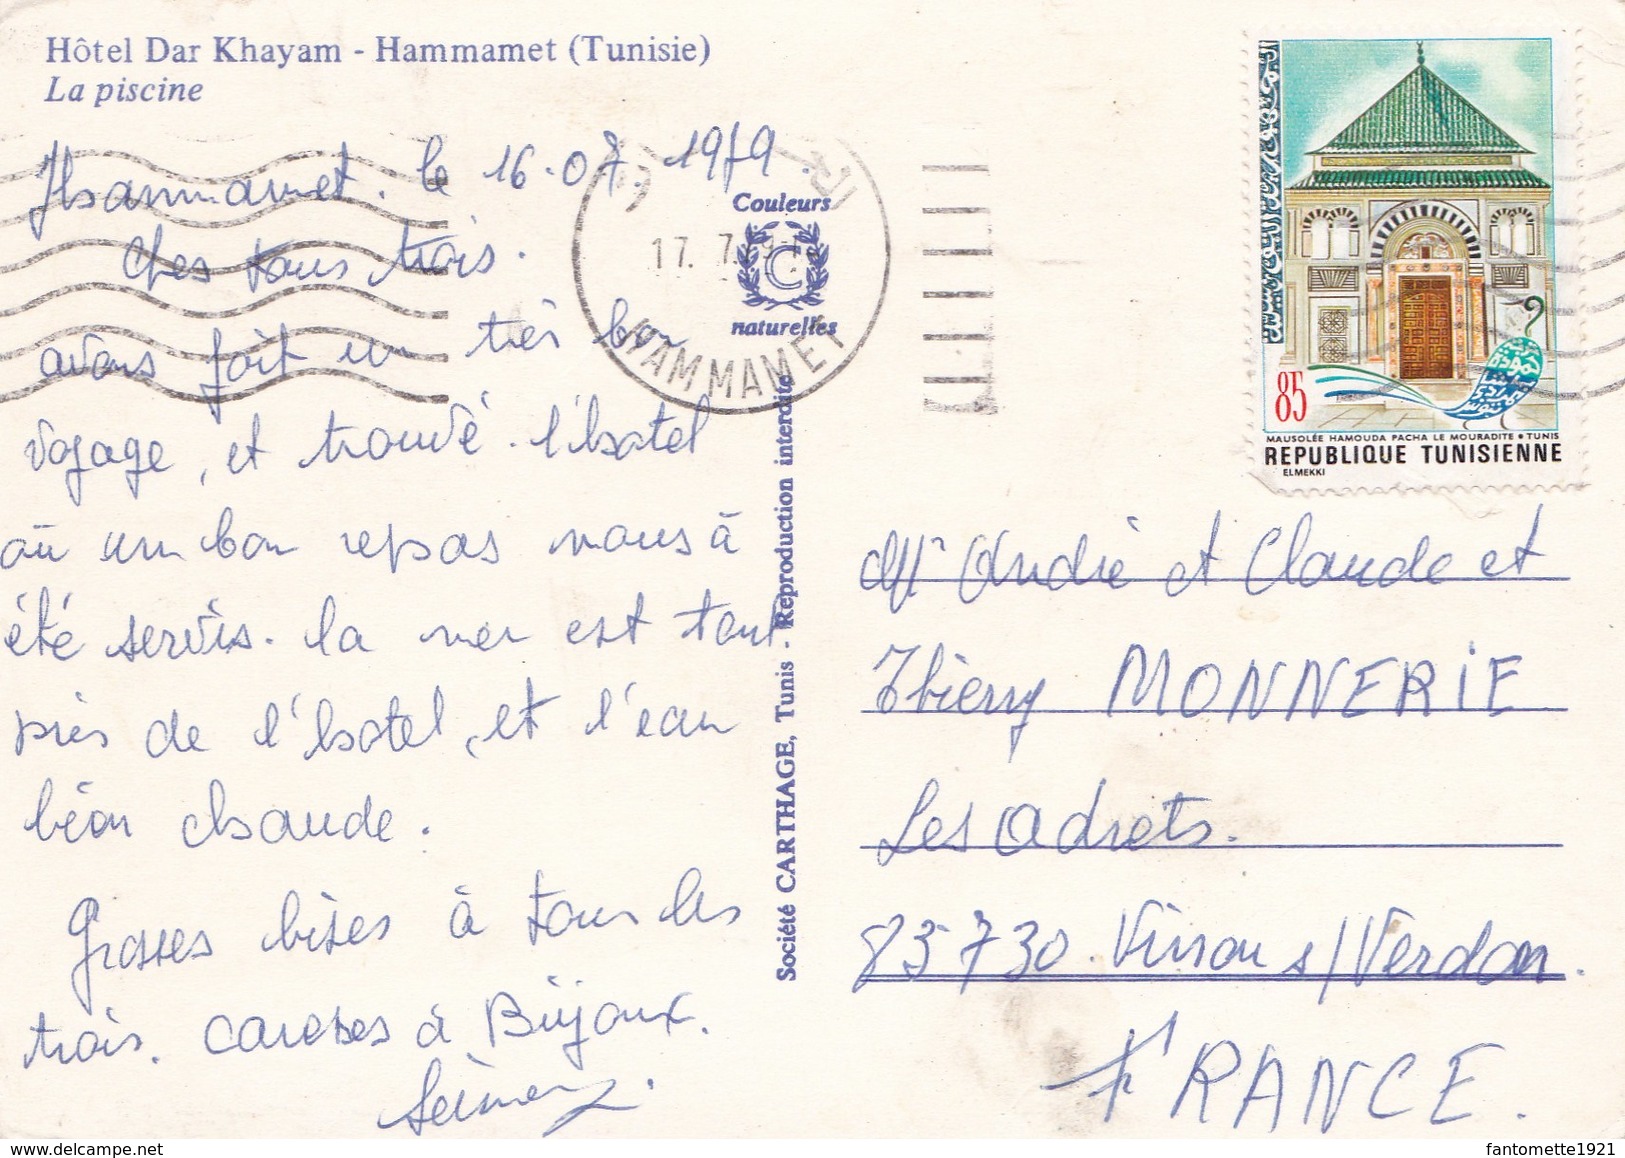 Hôtel Dar Khayam - Hammamet (Tunisie)
La piscine
Hammamet. le 16.07.1979.
Ches tous trois.
avons fait un très bon
voyage, et trouvé l'hotel
où un bon repas nous à
été servis. la mer est tout
près de l'hotel, et l'eau
bien chaude.
Grosses bises à tous les
trois. caresses à Bijoux.
Couleurs
C
naturelles
17. 7.
HAMMAMET
Société CARTHAGE, Tunis - Reproduction interdite
85
MAUSOLÉE HAMOUDA PACHA LE MOURADITE • TUNIS
REPUBLIQUE TUNISIENNE
ELMEKKI
Mr André et Claude et
Thierry MONNERIE
Les Adrets.
83730. Vinon s/Verdon.
FRANCE.
fantomette1921